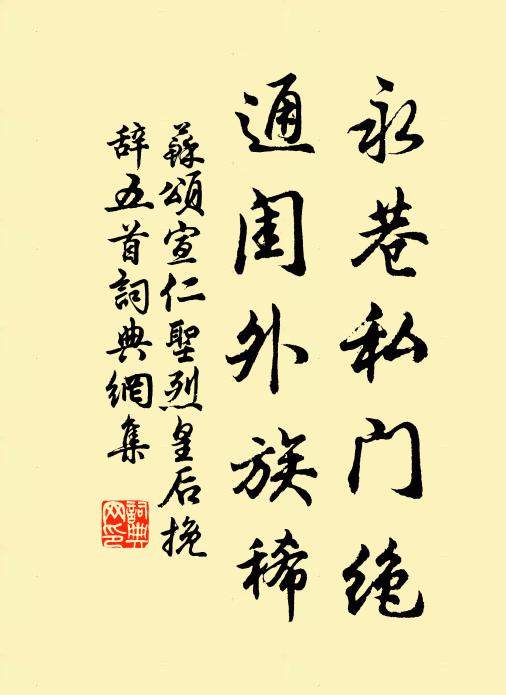 永巷私门绝
通闺外族稀
蘇頌宣仁聖烈皇后挽
辞五首詞典網集
詞典
网印